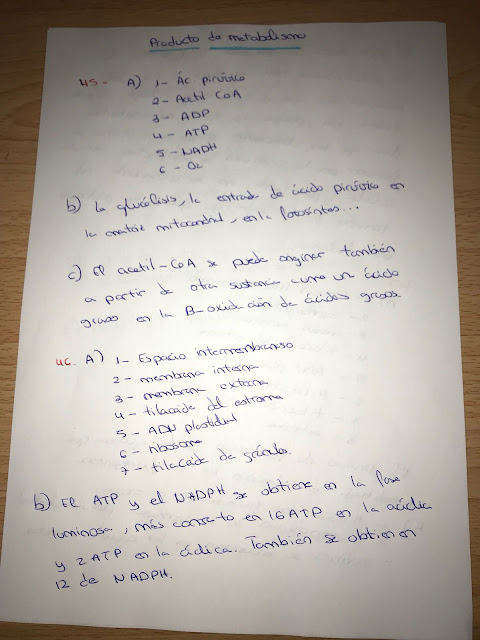 Producto de metabolismo
45- A) 1- Ác pirúvico
2- Acetil CoA
3- ADP
4- ATP
5- NADH
6- O2
b) La glucólisis, la entrada de ácido pirúvico en
la matriz mitocondrial, en la fotosíntesis...
c) El acetil-CoA se puede originar también
a partir de otra sustancia como un ácido
graso en la B-oxidación de ácidos grasos
46. A) 1- Espacio intermembranoso
2- membrana interna
3- membrana externa
4- tilacoide del estroma
5- ADN plastidial
6- ribosoma
7- tilacoide de gránulo.
b) El ATP y el NADPH se obtiene en la fase
luminosa, más concreto en 16 ATP en la acíclica
y 2 ATP en la cíclica. También se obtienen
12 de NADPH.